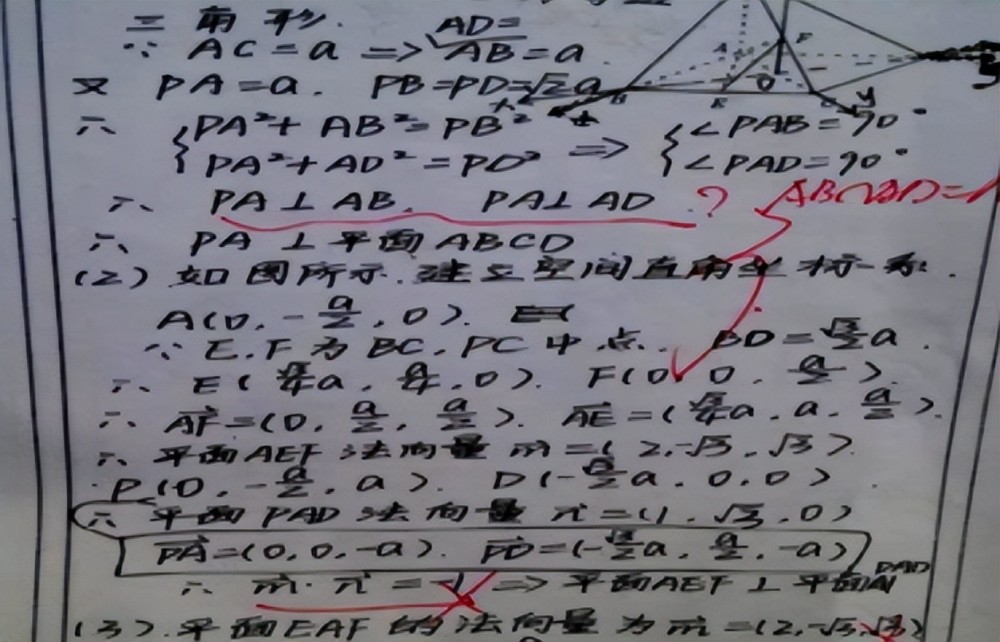 三角形. AD=
∵ AC=a ⇒ AB=a
又 PA=a. PB=PD=√2a
∴ {PA²+AB²=PB² ⇒ {∠PAB=90°
{PA²+AD²=PD² {∠PAD=90°
∴ PA⊥AB, PA⊥AD ?
∴ PA⊥平面ABCD
(2) 如图所示.建立空间直角坐标系.
A(0,-a/2,0).
∵ E.F为BC.PC中点. BD=√3/2a.
∴ E(√3/4a, a/4, 0). F(0, 0, a/2).
∴ AF=(0, a/2, a/2). AE=(√3/4a, a, a/2).
∴ 平面AEF法向量 m=(2,-√3,√3).
P(0,-a/2,a). D(-√3/2a,0,0).
∴ 平面PAD法向量 n=(1,√3,0)
PA=(0,0,-a). PD=(-√3/2a, a/2, -a)
∴ m·n=-1 ⇒ 平面AEF⊥平面 PAD
(3).平面EAF的法向量为m=(2,-√3,√3)